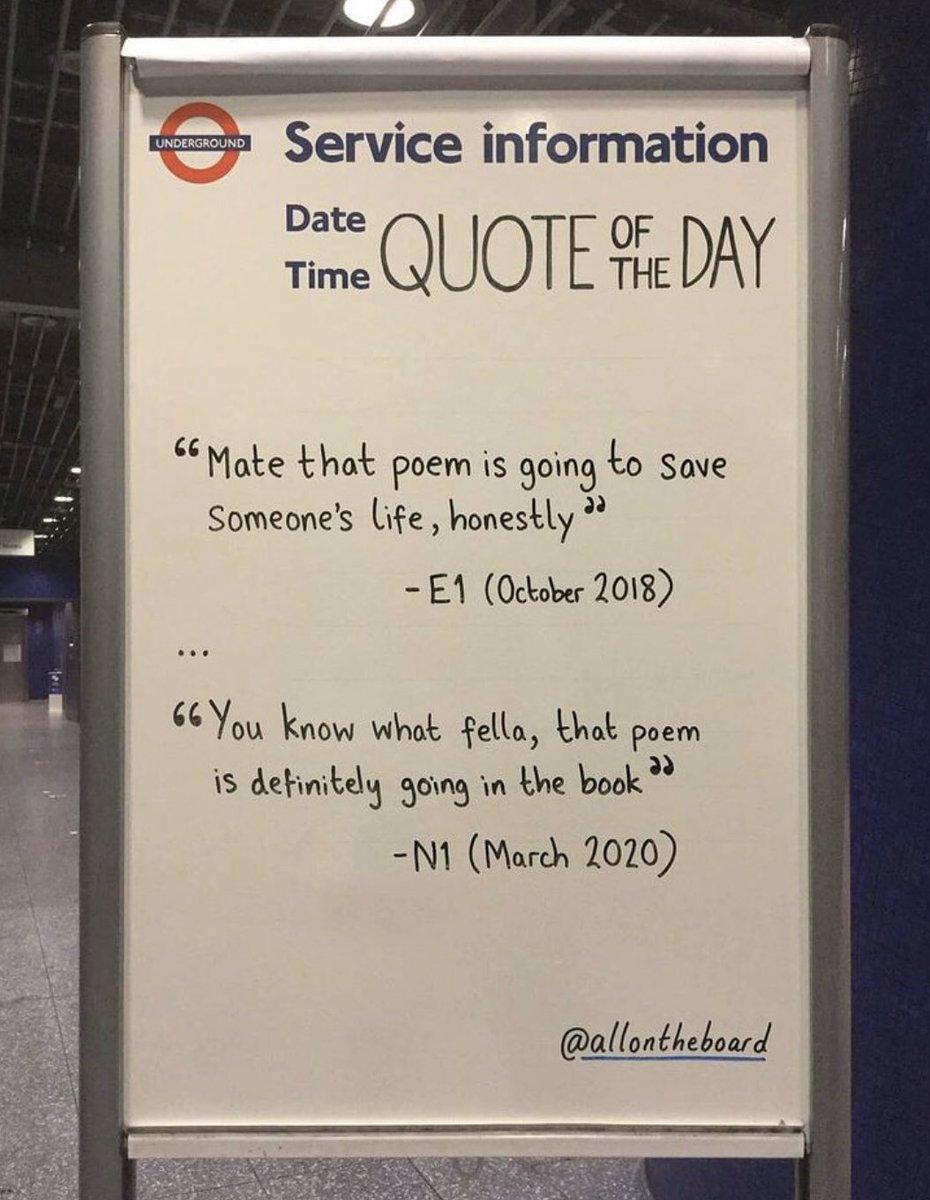 UNDERGROUND
Service information
Date
Time
QUOTE OF THE DAY
“Mate that poem is going to save
someone's life, honestly”
- E1 (October 2018)
...
“You know what fella, that poem
is definitely going in the book”
- N1 (March 2020)
@allontheboard